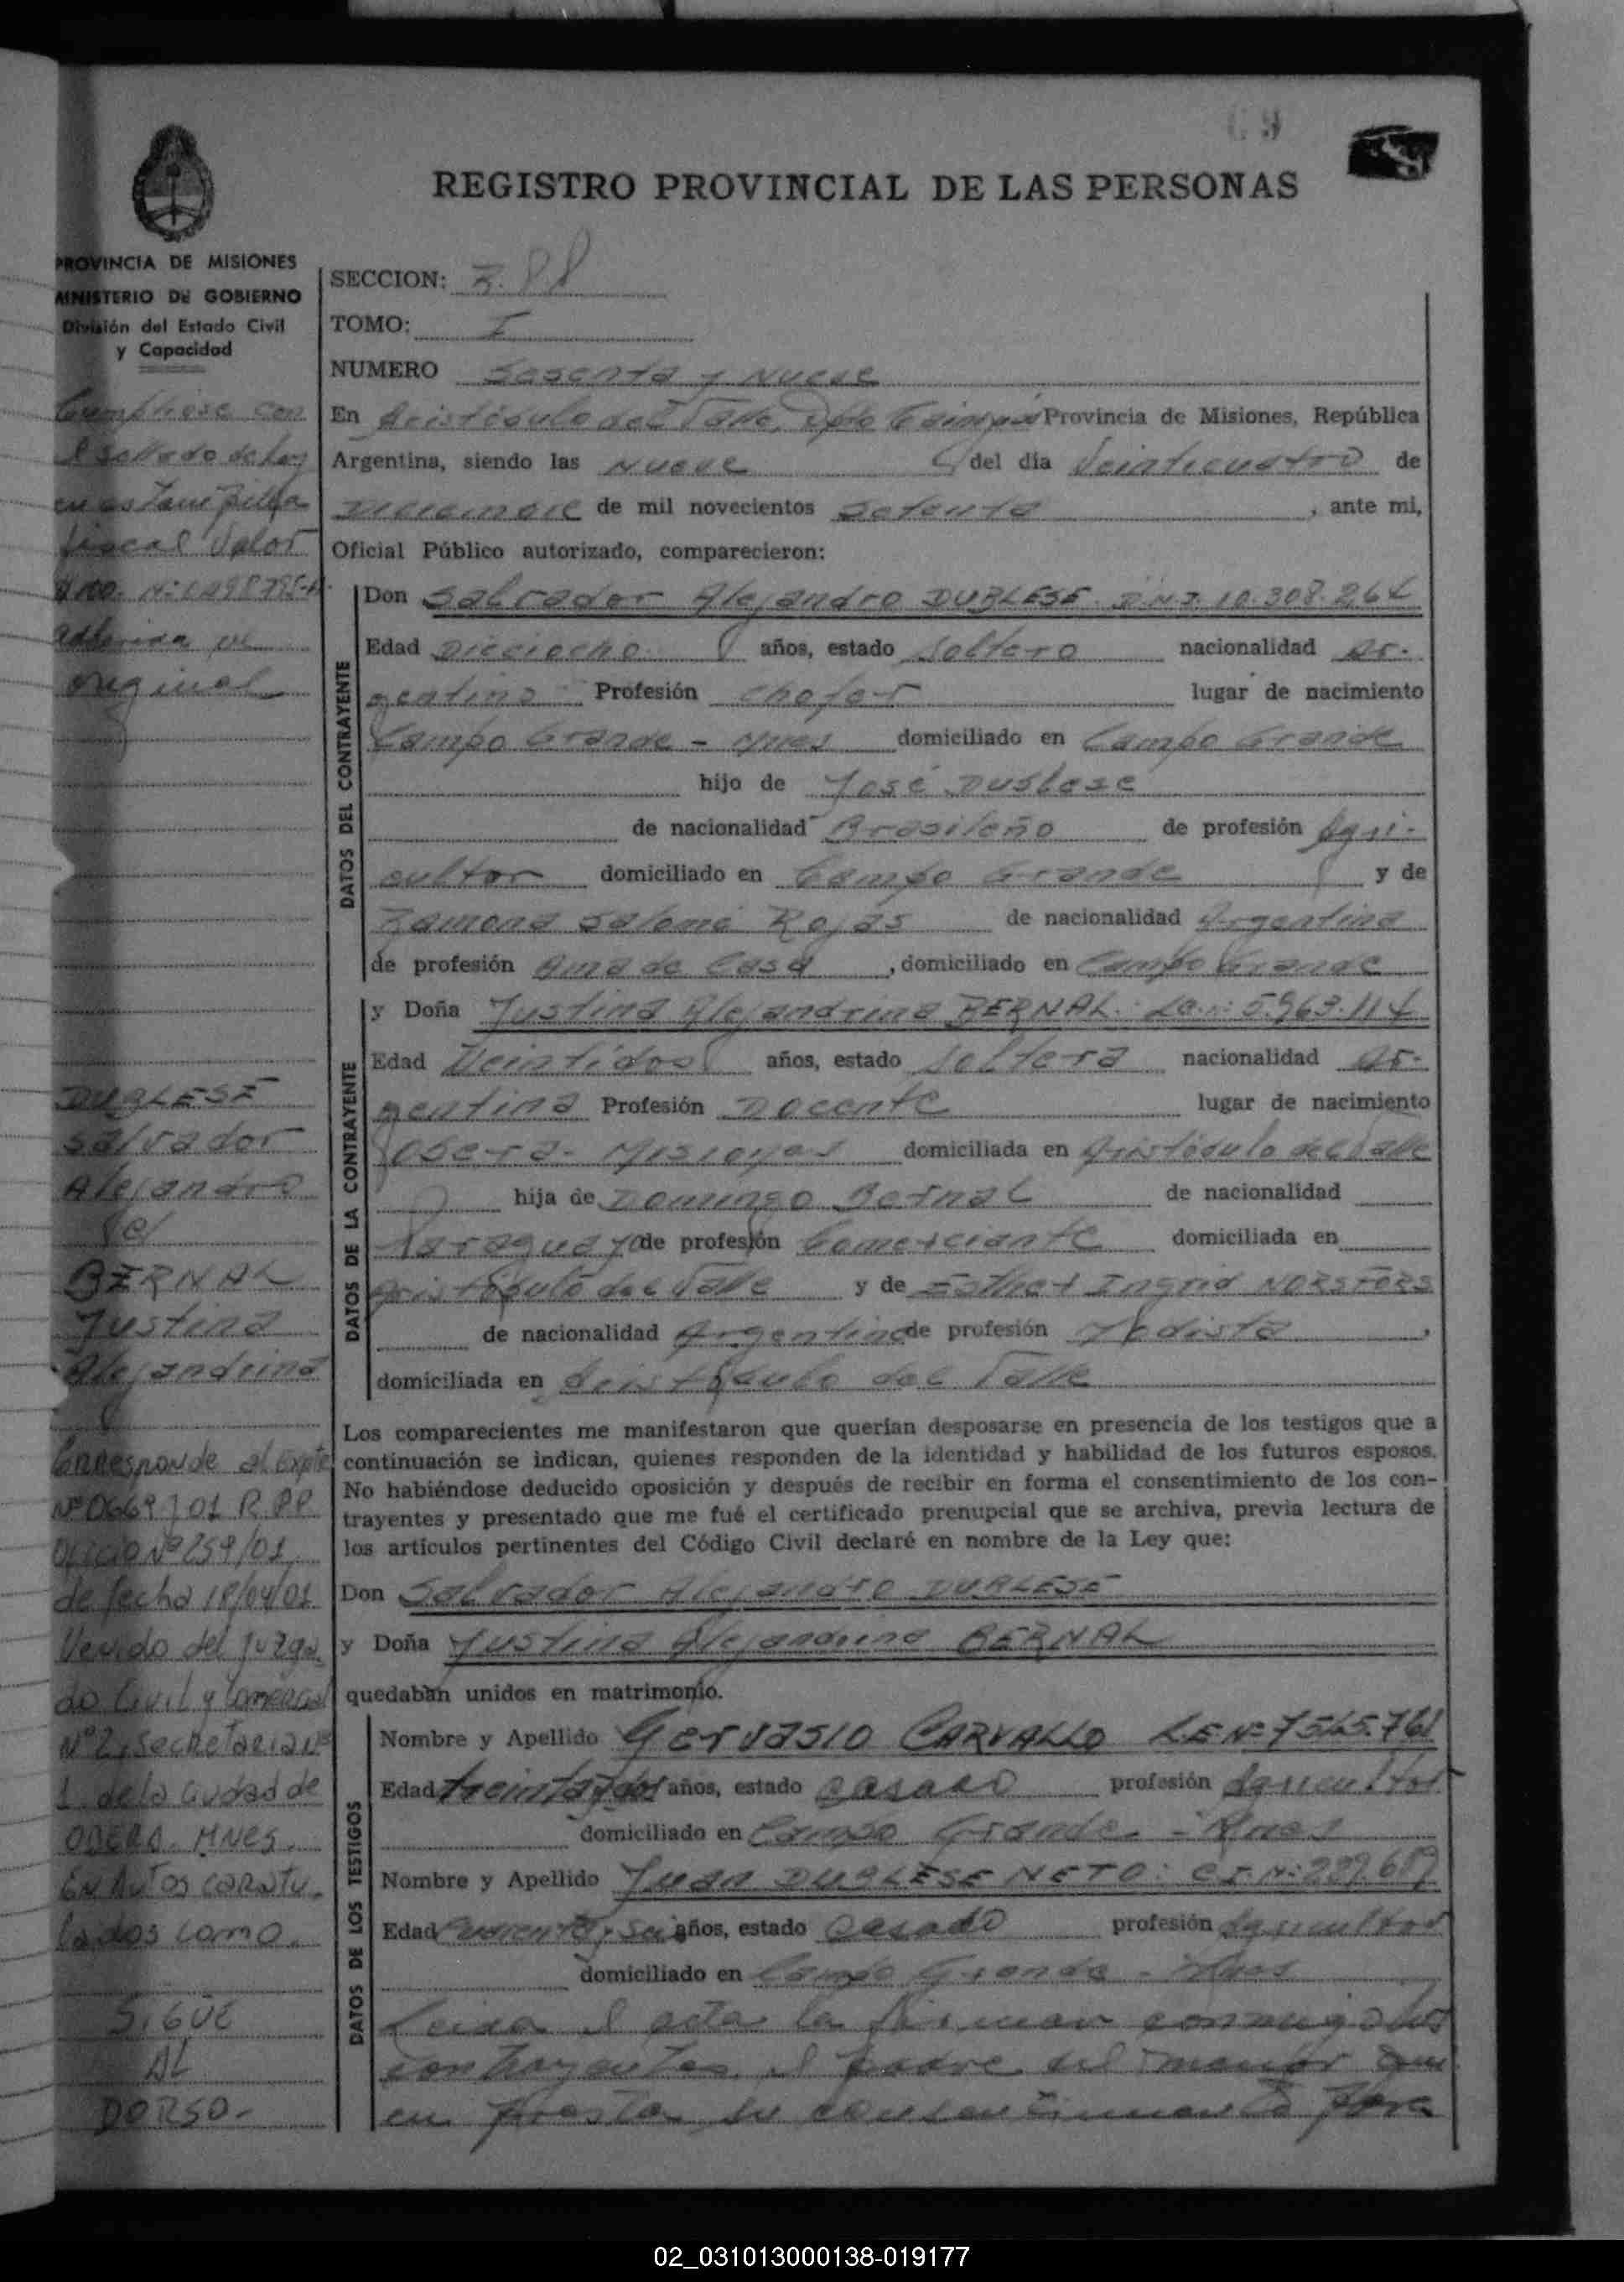 69
REGISTRO PROVINCIAL DE LAS PERSONAS
PROVINCIA DE MISIONES
MINISTERIO DE GOBIERNO
División del Estado Civil
y Capacidad
SECCION:
TOMO: I
NUMERO Sesenta y Nueve
En Aristóbulo del Valle, Dpto Cainguás Provincia de Misiones, República
Argentina, siendo las Nueve del día Veinticuatro de
Diciembre de mil novecientos Setenta, ante mi,
Oficial Público autorizado, comparecieron:
DATOS DEL CONTRAYENTE
Don Salvador Alejandro DUBLESE D.N.I. 10.308.264
Edad Dieciocho años, estado Soltero nacionalidad Ar-
gentino Profesión Chofer lugar de nacimiento
Campo Grande - Mnes domiciliado en Campo Grande
hijo de José DUBLESE
de nacionalidad Brasileño de profesión Agri-
cultor domiciliado en Campo Grande y de
Ramona Salomé Rojas de nacionalidad Argentina
de profesión Ama de Casa, domiciliado en Campo Grande
DATOS DE LA CONTRAYENTE
y Doña Justina Alejandrina BERNAL. L.C. N: 5.963.114
Edad Veintidos años, estado Soltera nacionalidad Ar-
gentina Profesión Docente lugar de nacimiento
Oberá - Misiones domiciliada en Aristóbulo del Valle
hija de Domingo Bernal de nacionalidad
Paraguayo de profesión Comerciante domiciliada en
Aristóbulo del Valle y de Esther Ingrid NORSFORS
de nacionalidad Argentina de profesión Modista,
domiciliada en Aristóbulo del Valle
Los comparecientes me manifestaron que querían desposarse en presencia de los testigos que a
continuación se indican, quienes responden de la identidad y habilidad de los futuros esposos.
No habiéndose deducido oposición y después de recibir en forma el consentimiento de los con-
trayentes y presentado que me fué el certificado prenupcial que se archiva, previa lectura de
los artículos pertinentes del Código Civil declaré en nombre de la Ley que:
Don Salvador Alejandro DUBLESE
y Doña Justina Alejandrina BERNAL
quedaban unidos en matrimonio.
DATOS DE LOS TESTIGOS
Nombre y Apellido Gervasio CARVALLO L.E Nº 7.545.761
Edad treinta y dos años, estado casado profesión Agricultor
domiciliado en Campo Grande - Mnes
Nombre y Apellido Juan DUBLESE NETO: C.I. N: 229.689
Edad Cuarenta y Seis años, estado Casado profesión Agricultor
domiciliado en Campo Grande - Mnes
Leida el acta la firman conmigo los
contrayentes, el padre del menor que
en presta su consentimiento para
Cumplióse con
el sellado de ley
en estampilla
fiscal Valor
adherida al
original
DUBLESE
Salvador
Alejandro
c/
BERNAL
Justina
Alejandrina
Corresponde al Expte
Nº 0669/01 R.P.P.
Oficio Nº 259/01
de fecha 18/04/01
Venido del Juzga-
do Civil y Comercial
Nº 2, Secretaria Nº
1 de la Ciudad de
OBERA - MNES.
En Autos caratu-
lados como.
SIGUE
AL
DORSO.
02_031013000138-019177